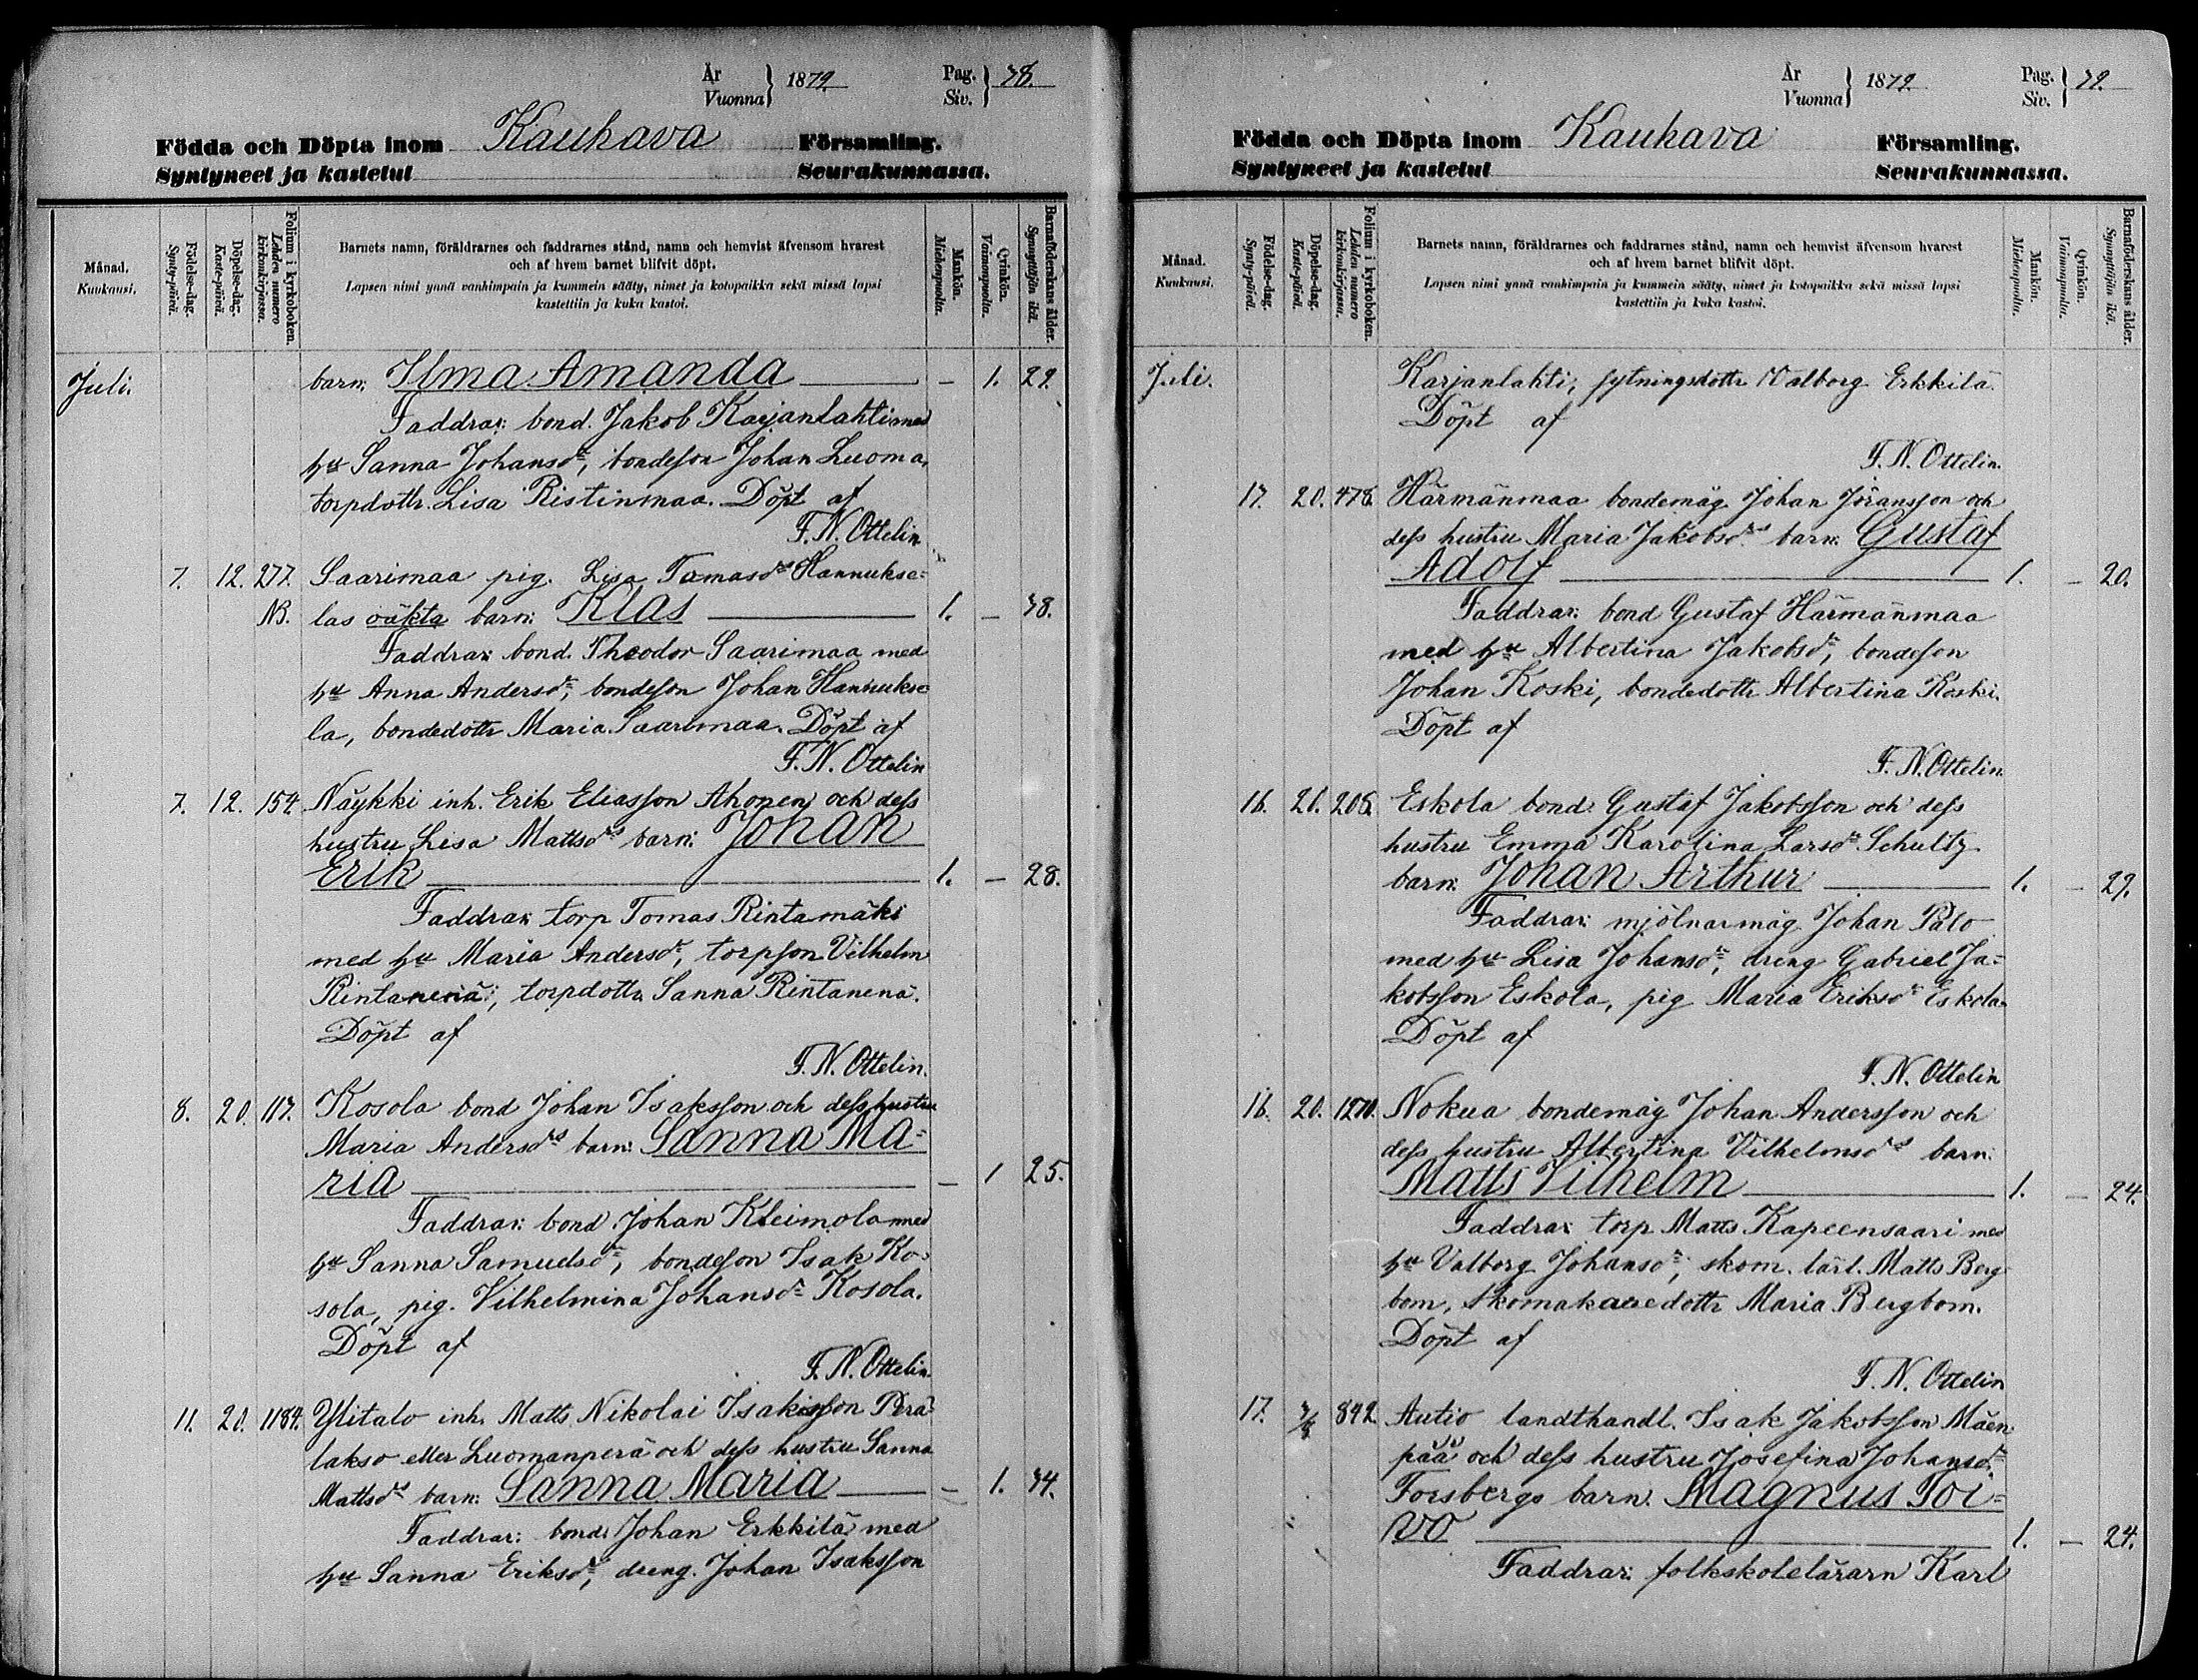 År
Vuonna } 1879. Pag.
Siv. } 38.
Födda och Döpta inom Kauhava Församling.
Syntyneet ja kastetut Seurakunnassa.
Månad.
Kuukausi.
Födelse-dag.
Synty-päivä.
Döpelse-dag.
Kaste-päivä.
Folium i kyrkoboken.
Lehden numero
kirkonkirjassa.
Barnets namn, föräldrarnes och faddrarnes stånd, namn och hemvist äfvensom hvarest
och af hvem barnet blifvit döpt.
Lapsen nimi ynnä vanhimpain ja kummein sääty, nimet ja kotopaikka sekä missä lapsi
kastettiin ja kuka kastoi.
Mankön.
Miehenpuolta.
Qvinkön.
Vaimonpuolta.
Barnaföderskans ålder.
Synnyttäjän ikä.
Juli. barn: Ilma Amanda — 1. 29.
Faddrar: bond. Jakob Karjanlahti med
hu Sanna Johansdr, bondesson Johan Luoma,
torpdottr. Lisa Ristinmaa. Döpt af
F. N. Ottelin
7. 12. 277. Saarimaa pig. Lisa Tomasdrs Hannukse-
NB. las oäkta barn: Klas 1. — 38.
Faddrar: bond. Theodor Saarimaa med
hu Anna Andersdr, bondesson Johan Hannukse-
la, bondedottr Maria Saarimaa. Döpt af
F. N. Ottelin
7. 12. 154. Näykki inh. Erik Eliasson Ahonen och dess
hustru Lisa Mattsdrs barn: Johan
Erik 1. — 28.
Faddrar: torp Tomas Rintamäki
med hu Maria Andersdr, torpson Vilhelm
Rintanenä, torpdottr Sanna Rintanenä.
Döpt af
F. N. Ottelin.
8. 20. 117. Kosola bond Johan Isaksson och dess hustru
Maria Andersdrs barn: Sanna Ma-
ria — 1 25.
Faddrar: bond Johan Kleimola med
hu Sanna Samuelsdr, bondesson Isak Ko-
sola, pig. Vilhelmina Johansdr Kosola.
Döpt af
F. N. Ottelin.
11. 20. 1184. Ylitalo inh. Matts Nikolai Isaksson Perä-
lakso eller Luomanperä och dess hustru Sanna
Mattsdrs barn: Sanna Maria — 1. 34.
Faddrar: bond. Johan Erkkilä med
hu Sanna Eriksdr, dreng. Johan Isaksson
År
Vuonna } 1879. Pag.
Siv. } 39.
Födda och Döpta inom Kauhava Församling.
Syntyneet ja kastetut Seurakunnassa.
Månad.
Kuukausi.
Födelse-dag.
Synty-päivä.
Döpelse-dag.
Kaste-päivä.
Folium i kyrkoboken.
Lehden numero
kirkonkirjassa.
Barnets namn, föräldrarnes och faddrarnes stånd, namn och hemvist äfvensom hvarest
och af hvem barnet blifvit döpt.
Lapsen nimi ynnä vanhimpain ja kummein sääty, nimet ja kotopaikka sekä missä lapsi
kastettiin ja kuka kastoi.
Mankön.
Miehenpuolta.
Qvinkön.
Vaimonpuolta.
Barnaföderskans ålder.
Synnyttäjän ikä.
Juli. Karjanlahti, sytningsdottr Valborg Erkkilä.
Döpt af
F. N. Ottelin.
17. 20. 478. Härmänmaa bondemåg Johan Jöransson och
dess hustru Maria Jakobsdrs barn: Gustaf
Adolf 1. — 20.
Faddrar: bond Gustaf Härmänmaa
med hu Albertina Jakobsdr, bondesson
Johan Koski, bondedottr Albertina Koski.
Döpt af
F. N. Ottelin.
16. 20. 206. Eskola bond. Gustaf Jakobsson och dess
hustru Emma Karolina Larsdr Schultz
barn: Johan Arthur 1. — 29.
Faddrar: mjölnarmåg Johan Palo
med hu Lisa Johansdr, dreng Gabriel Ja-
kobsson Eskola, pig Maria Eriksdr Eskola.
Döpt af
F. N. Ottelin
16. 20. 1270. Nokua bondemåg Johan Andersson och
dess hustru Albertina Vilhelmsdrs barn:
Matts Vilhelm 1. — 24.
Faddrar: torp Matts Kapeensaari med
hu Valborg Johansdr, skom. lärl. Matts Berg-
bom, skomakaredottr Maria Bergbom.
Döpt af
F. N. Ottelin
17. 3/8 892. Autio landthandl. Isak Jakobsson Mäen-
pää och dess hustru Josefina Johansdr
Forsbergs barn: Magnus Toi-
vo 1. — 24.
Faddrar: folkskolelärarn Karl